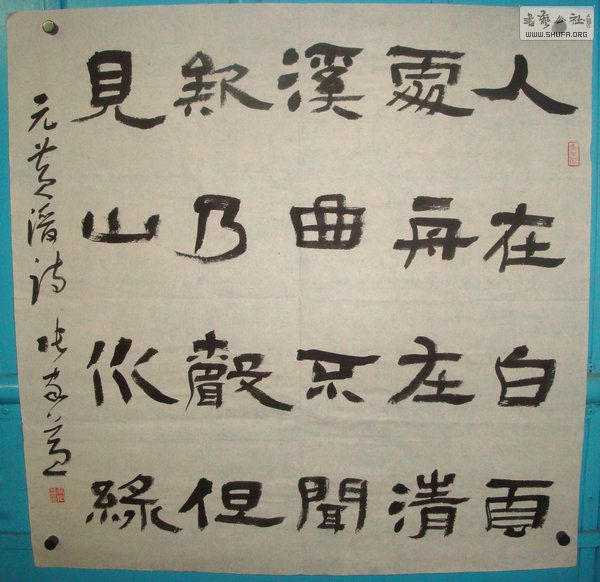 人在白頁
處舟左清
溪曲只聞
欸乃聲但
見山水綠
元黄溍诗
书法公社
WWW.SHUFA.ORG